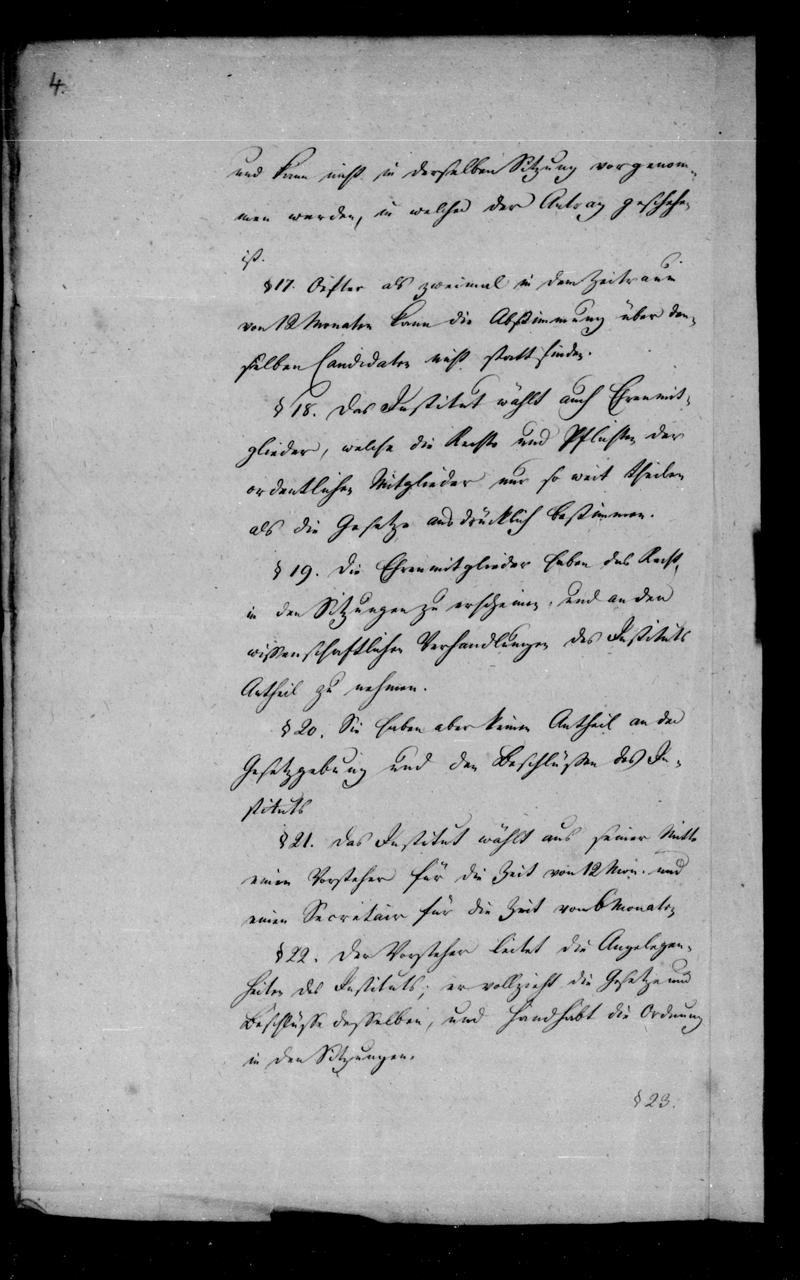 4.
und kann nicht in derselben Sitzung vorgenom-
men werden, in welcher der Antrag geschehen
ist.
§ 17. Oefter als zweimal in dem Zeitraum
von 12 Monaten kann die Abstimmung über den-
selben Candidaten nicht statt finden.
§ 18. Das Institut wählt auch Ehrenmit-
glieder, welche die Rechte und Pflichten der
ordentlichen Mitglieder nur so weit theilen
als die Gesetze ausdrücklich bestimmen.
§ 19. Die Ehrenmitglieder haben das Recht,
in den Sitzungen zu erscheinen, und an den
wissenschaftlichen Verhandlungen des Instituts
Antheil zu nehmen.
§ 20. Sie haben aber keinen Antheil an der
Gesetzgebung und den Beschlüssen des In-
stituts
§ 21. Das Institut wählt aus seiner Mitte
einen Vorsteher für die Zeit von 12 Mon. und
einen Secretair für die Zeit von 6 Monaten
§ 22. Der Vorsteher leitet die Angelegen-
heiten des Instituts; er vollzieht die Gesetze und
Beschlüsse desselben, und handhabt die Ordnung
in den Sitzungen.
§ 23.